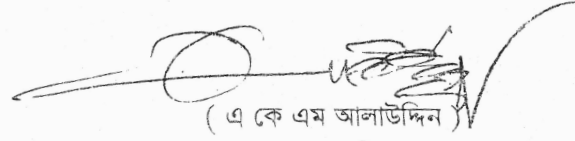 ( এ কে এম আলাউদ্দিন )